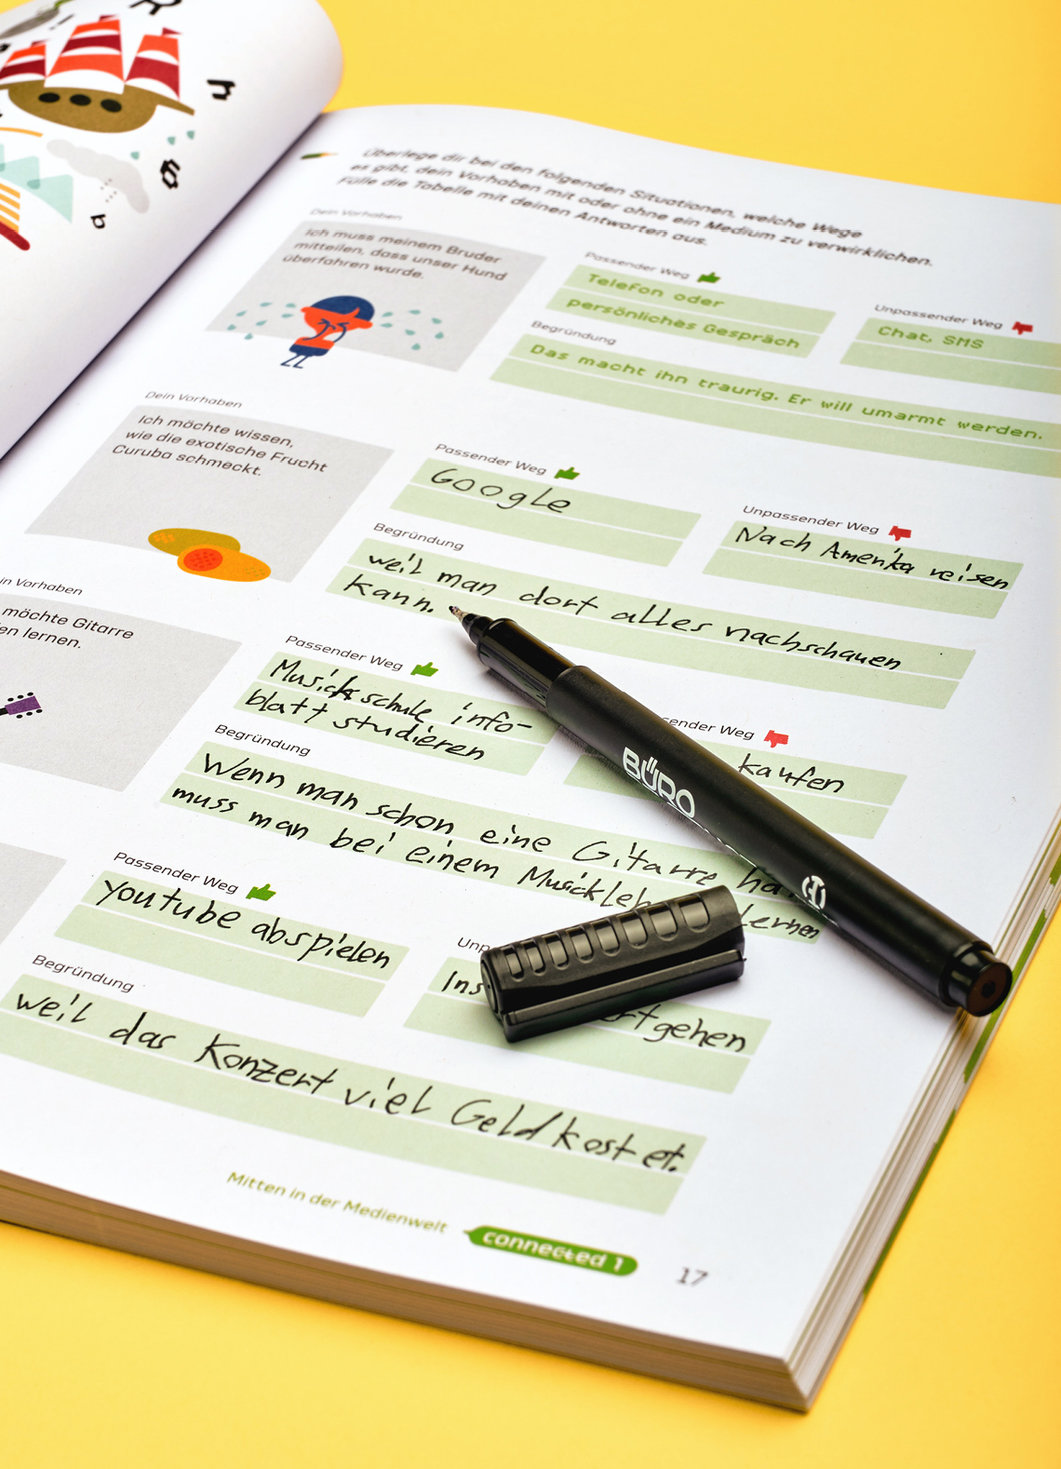 Überlege dir bei den folgenden Situationen, welche Wege
es gibt, dein Vorhaben mit oder ohne ein Medium zu verwirklichen.
Fülle die Tabelle mit deinen Antworten aus.
Dein Vorhaben
Ich muss meinem Bruder
mitteilen, dass unser Hund
überfahren wurde.
Passender Weg
Telefon oder
persönliches Gespräch
Unpassender Weg
Chat, SMS
Begründung
Das macht ihn traurig. Er will umarmt werden.
Dein Vorhaben
Ich möchte wissen,
wie die exotische Frucht
Curuba schmeckt.
Passender Weg
Google
Unpassender Weg
Nach Amerika reisen
Begründung
weil man dort alles nachschauen
kann.
in Vorhaben
möchte Gitarre
lernen.
Passender Weg
Musickschule info-
blatt studieren
Weg
kaufen
Begründung
Wenn man schon eine Gitarre
muss man bei einem lernen
Passender Weg
youtube abspielen
gehen
Begründung
weil das Konzert viel Geld kostet.
Mitten in der Medienwelt
connected 1
17
BÜRO